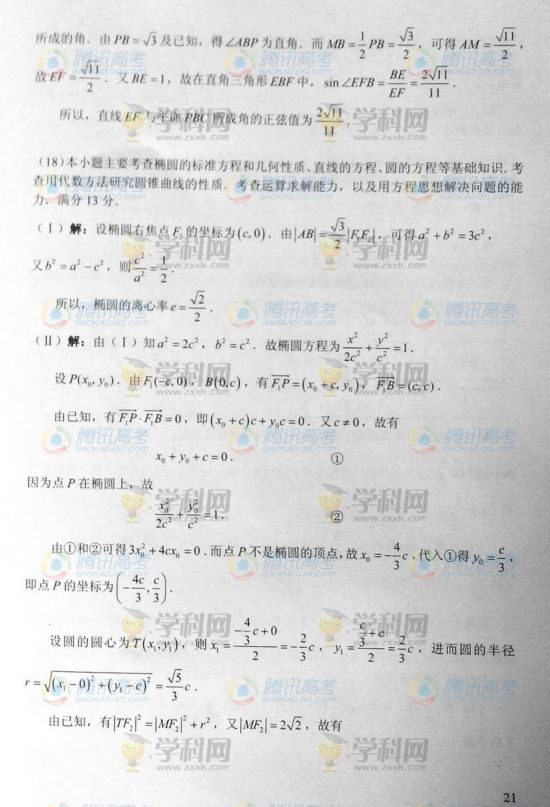 所成的角．由 PB = √3 及已知，得 ∠ABP 为直角．而 MB = 1/2 PB = √3/2，可得 AM = √11/2，
故 EF = √11/2．又 BE = 1，故在直角三角形 EBF 中，sin∠EFB = BE/EF = 2√11/11．
所以，直线 EF 与平面 PBC 所成角的正弦值为 2√11/11．
(18) 本小题主要考查椭圆的标准方程和几何性质、直线的方程、圆的方程等基础知识．考
查用代数方法研究圆锥曲线的性质．考查运算求解能力，以及用方程思想解决问题的能
力．满分 13 分．
(Ⅰ) 解：设椭圆右焦点 F₂ 的坐标为 (c, 0)．由 |AB| = √3/2 |F₁F₂|，可得 a² + b² = 3c²，
又 b² = a² − c²，则 c²/a² = 1/2．
所以，椭圆的离心率 e = √2/2．
(Ⅱ) 解：由（Ⅰ）知 a² = 2c²，b² = c²．故椭圆方程为 x²/2c² + y²/c² = 1．
设 P(x₀, y₀)．由 F₁(−c, 0)，B(0, c)，有 F₁P→ = (x₀ + c, y₀)，F₁B→ = (c, c)．
由已知，有 F₁P→ · F₁B→ = 0，即 (x₀ + c)c + y₀c = 0．又 c ≠ 0，故有
x₀ + y₀ + c = 0． ①
因为点 P 在椭圆上，故
x₀²/2c² + y₀²/c² = 1． ②
由①和②可得 3x₀² + 4cx₀ = 0．而点 P 不是椭圆的顶点，故 x₀ = −4/3 c，代入①得 y₀ = c/3，
即点 P 的坐标为 (−4c/3, c/3)．
设圆的圆心为 T(x₁, y₁)，则 x₁ = (−4/3 c + 0)/2 = −2/3 c，y₁ = (c/3 + c)/2 = 2/3 c，进而圆的半径
r = √((x₁ − 0)² + (y₁ − c)²) = √5/3 c．
由已知，有 |TF₂|² = |MF₂|² + r²，又 |MF₂| = 2√2，故有
21
腾讯高考
GAOKAO.QQ.COM
学科网
www.zxxk.com